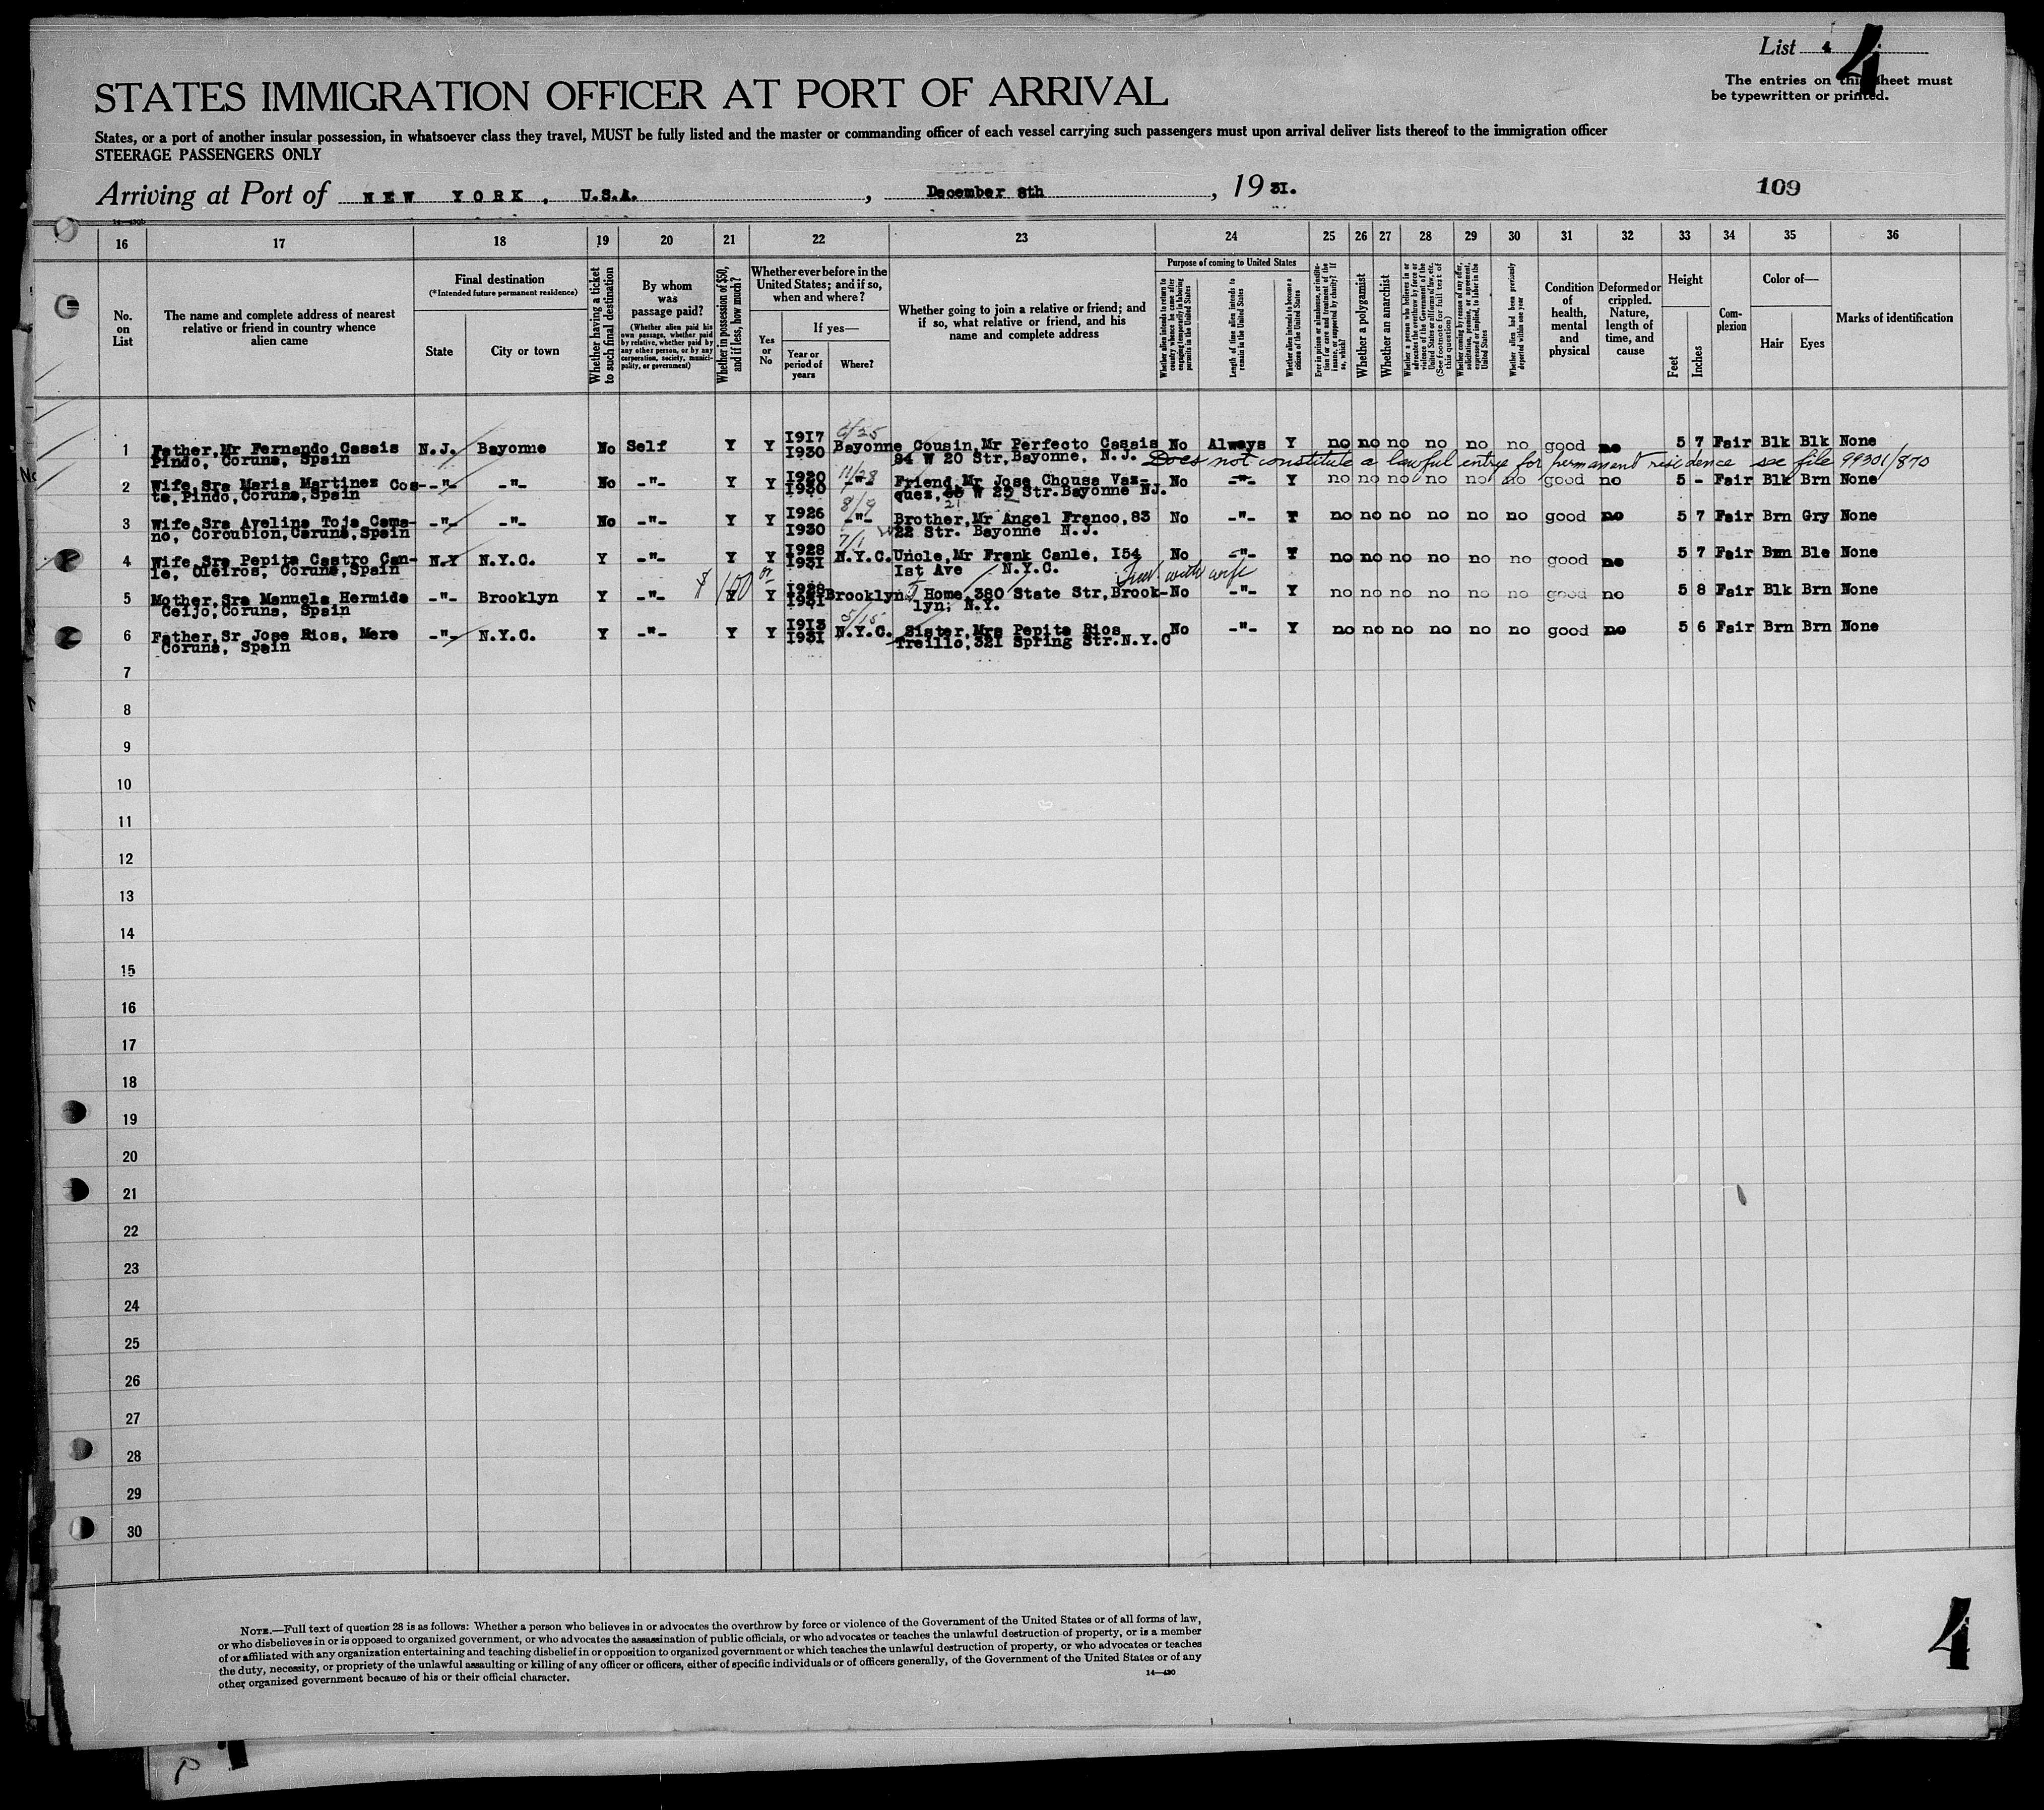 List 4 4
The entries on this sheet must
be typewritten or printed.
STATES IMMIGRATION OFFICER AT PORT OF ARRIVAL
States, or a port of another insular possession, in whatsoever class they travel, MUST be fully listed and the master or commanding officer of each vessel carrying such passengers must upon arrival deliver lists thereof to the immigration officer
STEERAGE PASSENGERS ONLY
Arriving at Port of NEW YORK, U.S.A. , December 8th , 19 31. 109
14—430b
16 17 18 19 20 21 22 23 24 25 26 27 28 29 30 31 32 33 34 35 36
No.
on
List
The name and complete address of nearest
relative or friend in country whence
alien came
Final destination
(*Intended future permanent residence)
State
City or town
Whether having a ticket
to such final destination
By whom
was
passage paid?
(Whether alien paid his
own passage, whether paid
by relative, whether paid by
any other person, or by any
corporation, society, munici-
pality, or government)
Whether in possession of $50,
and if less, how much?
Whether ever before in the
United States; and if so,
when and where?
Yes
or
No
If yes—
Year or
period of
years
Where?
Whether going to join a relative or friend; and
if so, what relative or friend, and his
name and complete address
Purpose of coming to United States
Whether alien intends to return to
country whence he came after
engaging temporarily in laboring
pursuits in the United States
Length of time alien intends to
remain in the United States
Whether alien intends to become a
citizen of the United States
Ever in prison or almshouse, or institu-
tion for care and treatment of the
insane, or supported by charity? If
so, which?
Whether a polygamist
Whether an anarchist
Whether a person who believes in or
advocates the overthrow by force or
violence of the Government of the
United States or all forms of law, etc.
(See footnote for full text of
this question)
Whether coming by reason of any offer,
solicitation, promise, or agreement,
expressed or implied, to labor in the
United States
Whether alien had been previously
deported within one year
Condition
of
health,
mental
and
physical
Deformed or
crippled.
Nature,
length of
time, and
cause
Height
Feet
Inches
Com-
plexion
Color of—
Hair
Eyes
Marks of identification
6/25
1 Father, Mr Fernando Casais N.J. Bayonne No Self Y Y I9I7 Bayonne Cousin, Mr Perfecto Casais No Always Y no no no no no no good no 5 7 Fair Blk Blk None
Pindo, Coruna, Spain I930 84 W 20 Str, Bayonne, N.J. Does not constitute a lawful entry for permanent residence see file 99301/870
11/28
2 Wife, Sra Maria Martinez Cos- -"- -"- No -"- Y Y I920 -"- Friend, Mr Jose Chousa Vaz- No -"- Y no no no no no no good no 5 - Fair Blk Brn None
ta, Pindo, Coruna, Spain I930 quez, W 25 Str. Bayonne NJ.
8/9 21
3 Wife, Sra Avelina Toja Cama- -"- -"- No -"- Y Y I926 -"- Brother, Mr Angel Franco, 83 No -"- Y no no no no no no good no 5 7 Fair Brn Gry None
no, Corcubion, Coruna, Spain I930 W 22 Str. Bayonne N.J.
7/1
4 Wife, Sra Pepita Castro Can- N.Y N.Y.C. Y -"- Y Y I928 N.Y.C. Uncle, Mr Frank Canle, I54 No -"- Y no no no no no no good no 5 7 Fair Brn Ble None
le, Oleiros, Coruna, Spain I931 Ist Ave N.Y.C.
$100 with wife
5 Mother, Sra Manuela Hermida -"- Brooklyn Y -"- Y Y Brooklyn Home, 380 State Str, Brook- No -"- Y no no no no no no good no 5 8 Fair Blk Brn None
Ceijo, Coruna, Spain I931 lyn, N.Y.
5/15
6 Father, Sr Jose Rios, Mera -"- N.Y.C. Y -"- Y Y I9I3 N.Y.C. Sister, Mrs Pepita Rios No -"- Y no no no no no no good no 5 6 Fair Brn Brn None
Coruna, Spain I931 Treillo, 321 Spring Str. N.Y.C
7
8
9
10
11
12
13
14
15
16
17
18
19
20
21
22
23
24
25
26
27
28
29
30
NOTE.—Full text of question 28 is as follows: Whether a person who believes in or advocates the overthrow by force or violence of the Government of the United States or of all forms of law,
or who disbelieves in or is opposed to organized government, or who advocates the assassination of public officials, or who advocates or teaches the unlawful destruction of property, or is a member
of or affiliated with any organization entertaining and teaching disbelief in or opposition to organized government or which teaches the unlawful destruction of property, or who advocates or teaches
the duty, necessity, or propriety of the unlawful assaulting or killing of any officer or officers, either of specific individuals or of officers generally, of the Government of the United States or of any
other organized government because of his or their official character.
14—430
4
P